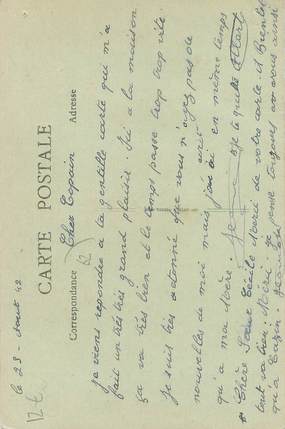 le 23 - Aout 42
CARTE POSTALE
Correspondance
Adresse
12
Cher Copain
je viens repondre a ta gentille carte qui m'a
fait un très très grand plaisir. Ici a la maison
ça va très bien et le temps passe trop trop vite.
Je suis très etonné que vous n'ayez pas de
nouvelles de moi mais j'ai ecrit en même temps
qu'a ma Mère. Je te quitte Albert
Chère Soeur Cécile Merci de votre carte et
tout va bien. je pense toujours a vous ainsi
qu'a